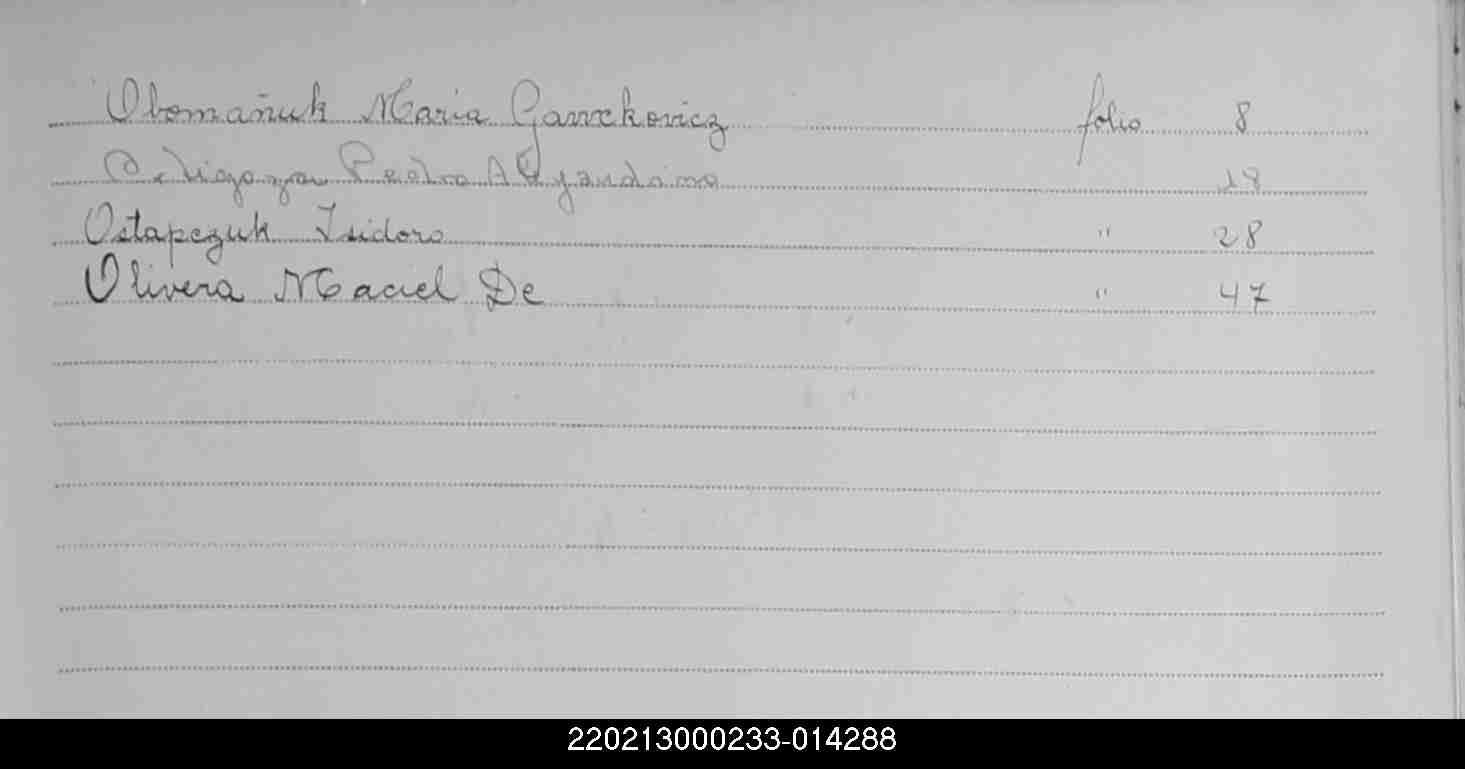 Obomañuk Maria Gavrckovicz folio 8
Ortigoza Pedro Alejandrino 18
Ostapczuk Isidoro " 28
Olivera Maciel De " 47
220213000233-014288